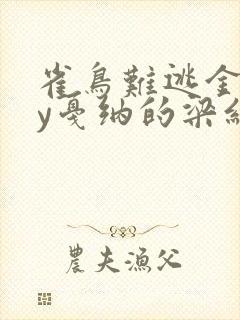 雀鳥難逃金
y戛纳的梁纟
農夫漁父